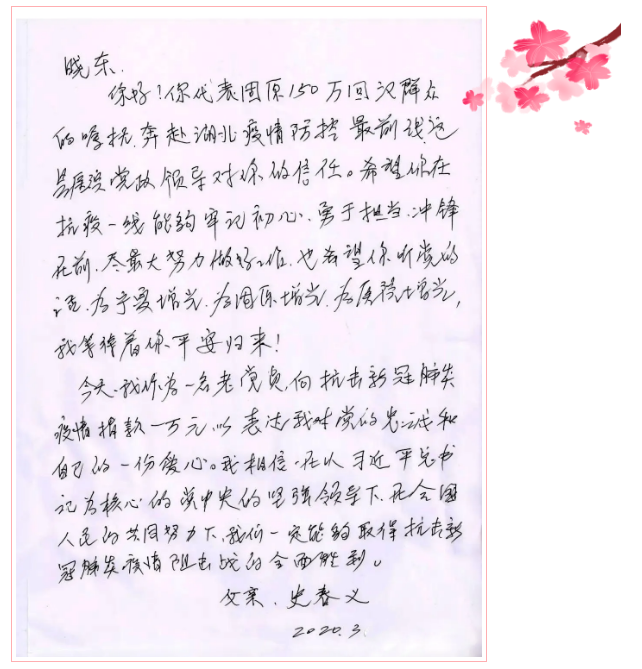 晓东.
你好!你代表固原150万回汉群众
的嘱托,奔赴湖北疫情防控最前线,这
是医院党政领导对你的信任。希望你在
抗疫一线能够牢记初心、勇于担当、冲锋
在前、尽最大努力做好工作、也希望你听党的
话、为宁夏增光、为固原增光、为医院增光,
我等待着你平安归来!
今天、我作为一名老党员、向抗击新冠肺炎
疫情捐款一万元、以表达我对党的忠诚和
自己的一份爱心。我相信、在以习近平总书
记为核心的党中央的坚强领导下、在全国
人民的共同努力下、我们一定能够取得抗击新
冠肺炎疫情阻击战的全面胜利。
父亲、史春义
2020.3.